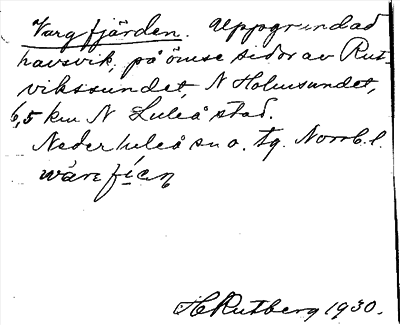 Vargfjärden. Uppgrundad
havsvik, på ömse sidor av Rut-
vikssundet, N Holmsundet,
6,5 km N Luleå stad.
Nederluleå sn o. tg. Norrb. l.
H Rutberg 1930.